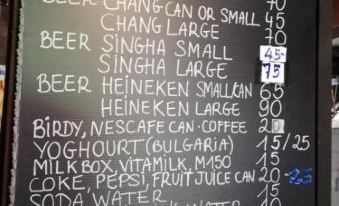 BEER CHANG CAN OR SMALL 45
CHANG LARGE 70
BEER SINGHA SMALL 45-
SINGHA LARGE 75
BEER HEINEKEN SMALL/CAN 65
HEINEKEN LARGE 90
BIRDY, NESCAFE CAN·COFFEE 20
YOGHOURT (BULGARIA) 15/25
MILK BOX, VITAMILK, M150 15
COKE, PEPSI, FRUIT JUICE CAN 20-25
SODA WATER 15
WATER 10